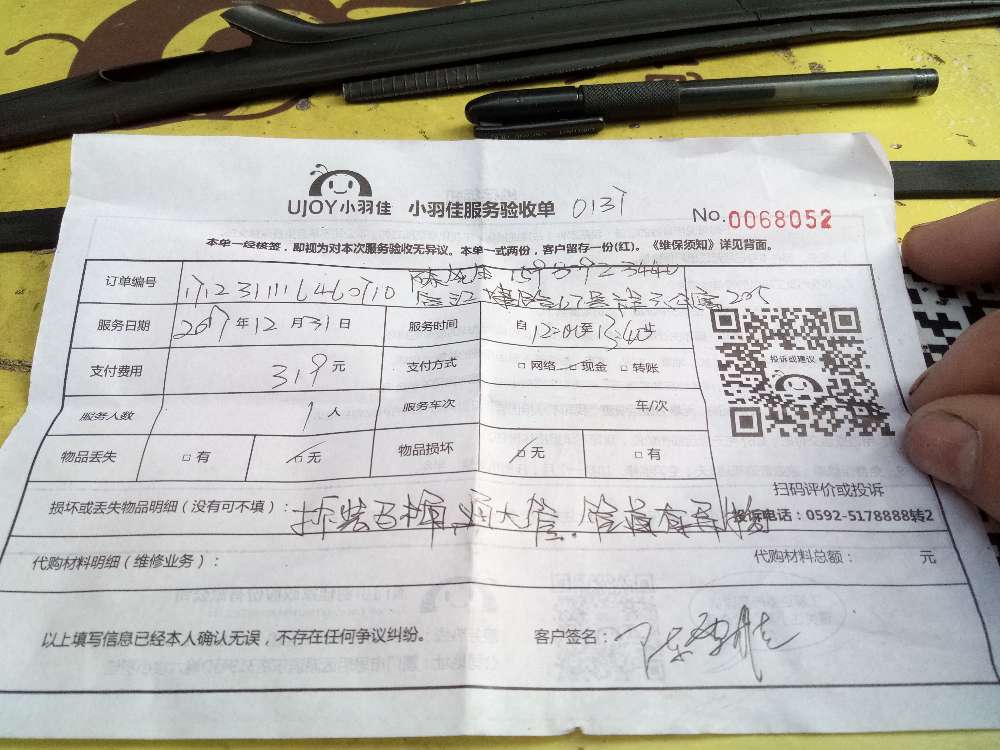 UJOY小羽佳 小羽佳服务验收单 No.0068052
本单一经核签，即视为对本次服务验收无异议。本单一式两份，客户留存一份(红)。《维保须知》详见背面。
订单编号
服务日期 2017年12月31日 服务时间 自12:00至13:40止
支付费用 319元 支付方式 □网络 □现金 □转账
投诉或建议
服务人数 1人 服务车次 车/次
物品丢失 □有 □无 物品损坏 □无 □有
扫码评价或投诉
损坏或丢失物品明细（没有可不填）： 拆装马桶,通大管.管道有异物
投诉电话：0592-5178888转2
代购材料明细（维修业务）： 代购材料总额： 元
以上填写信息已经本人确认无误，不存在任何争议纠纷。 客户签名：